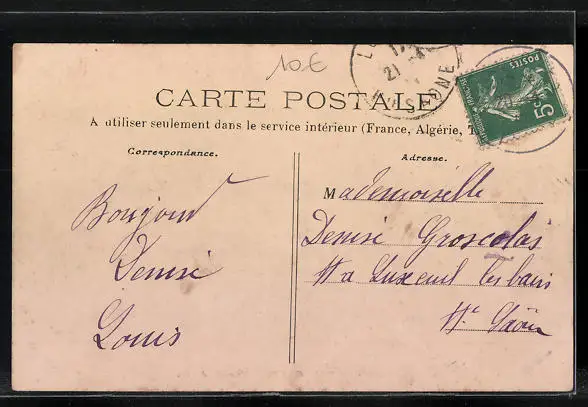 10€
CARTE POSTALE
A utiliser seulement dans le service intérieur (France, Algérie, T
Correspondance.
Adresse.
Bonjour
Denise
Louis
Mademoiselle
Denise Groscolas
à Luxeuil les bains
Hte Saône
POSTES
5c
SAONE
21